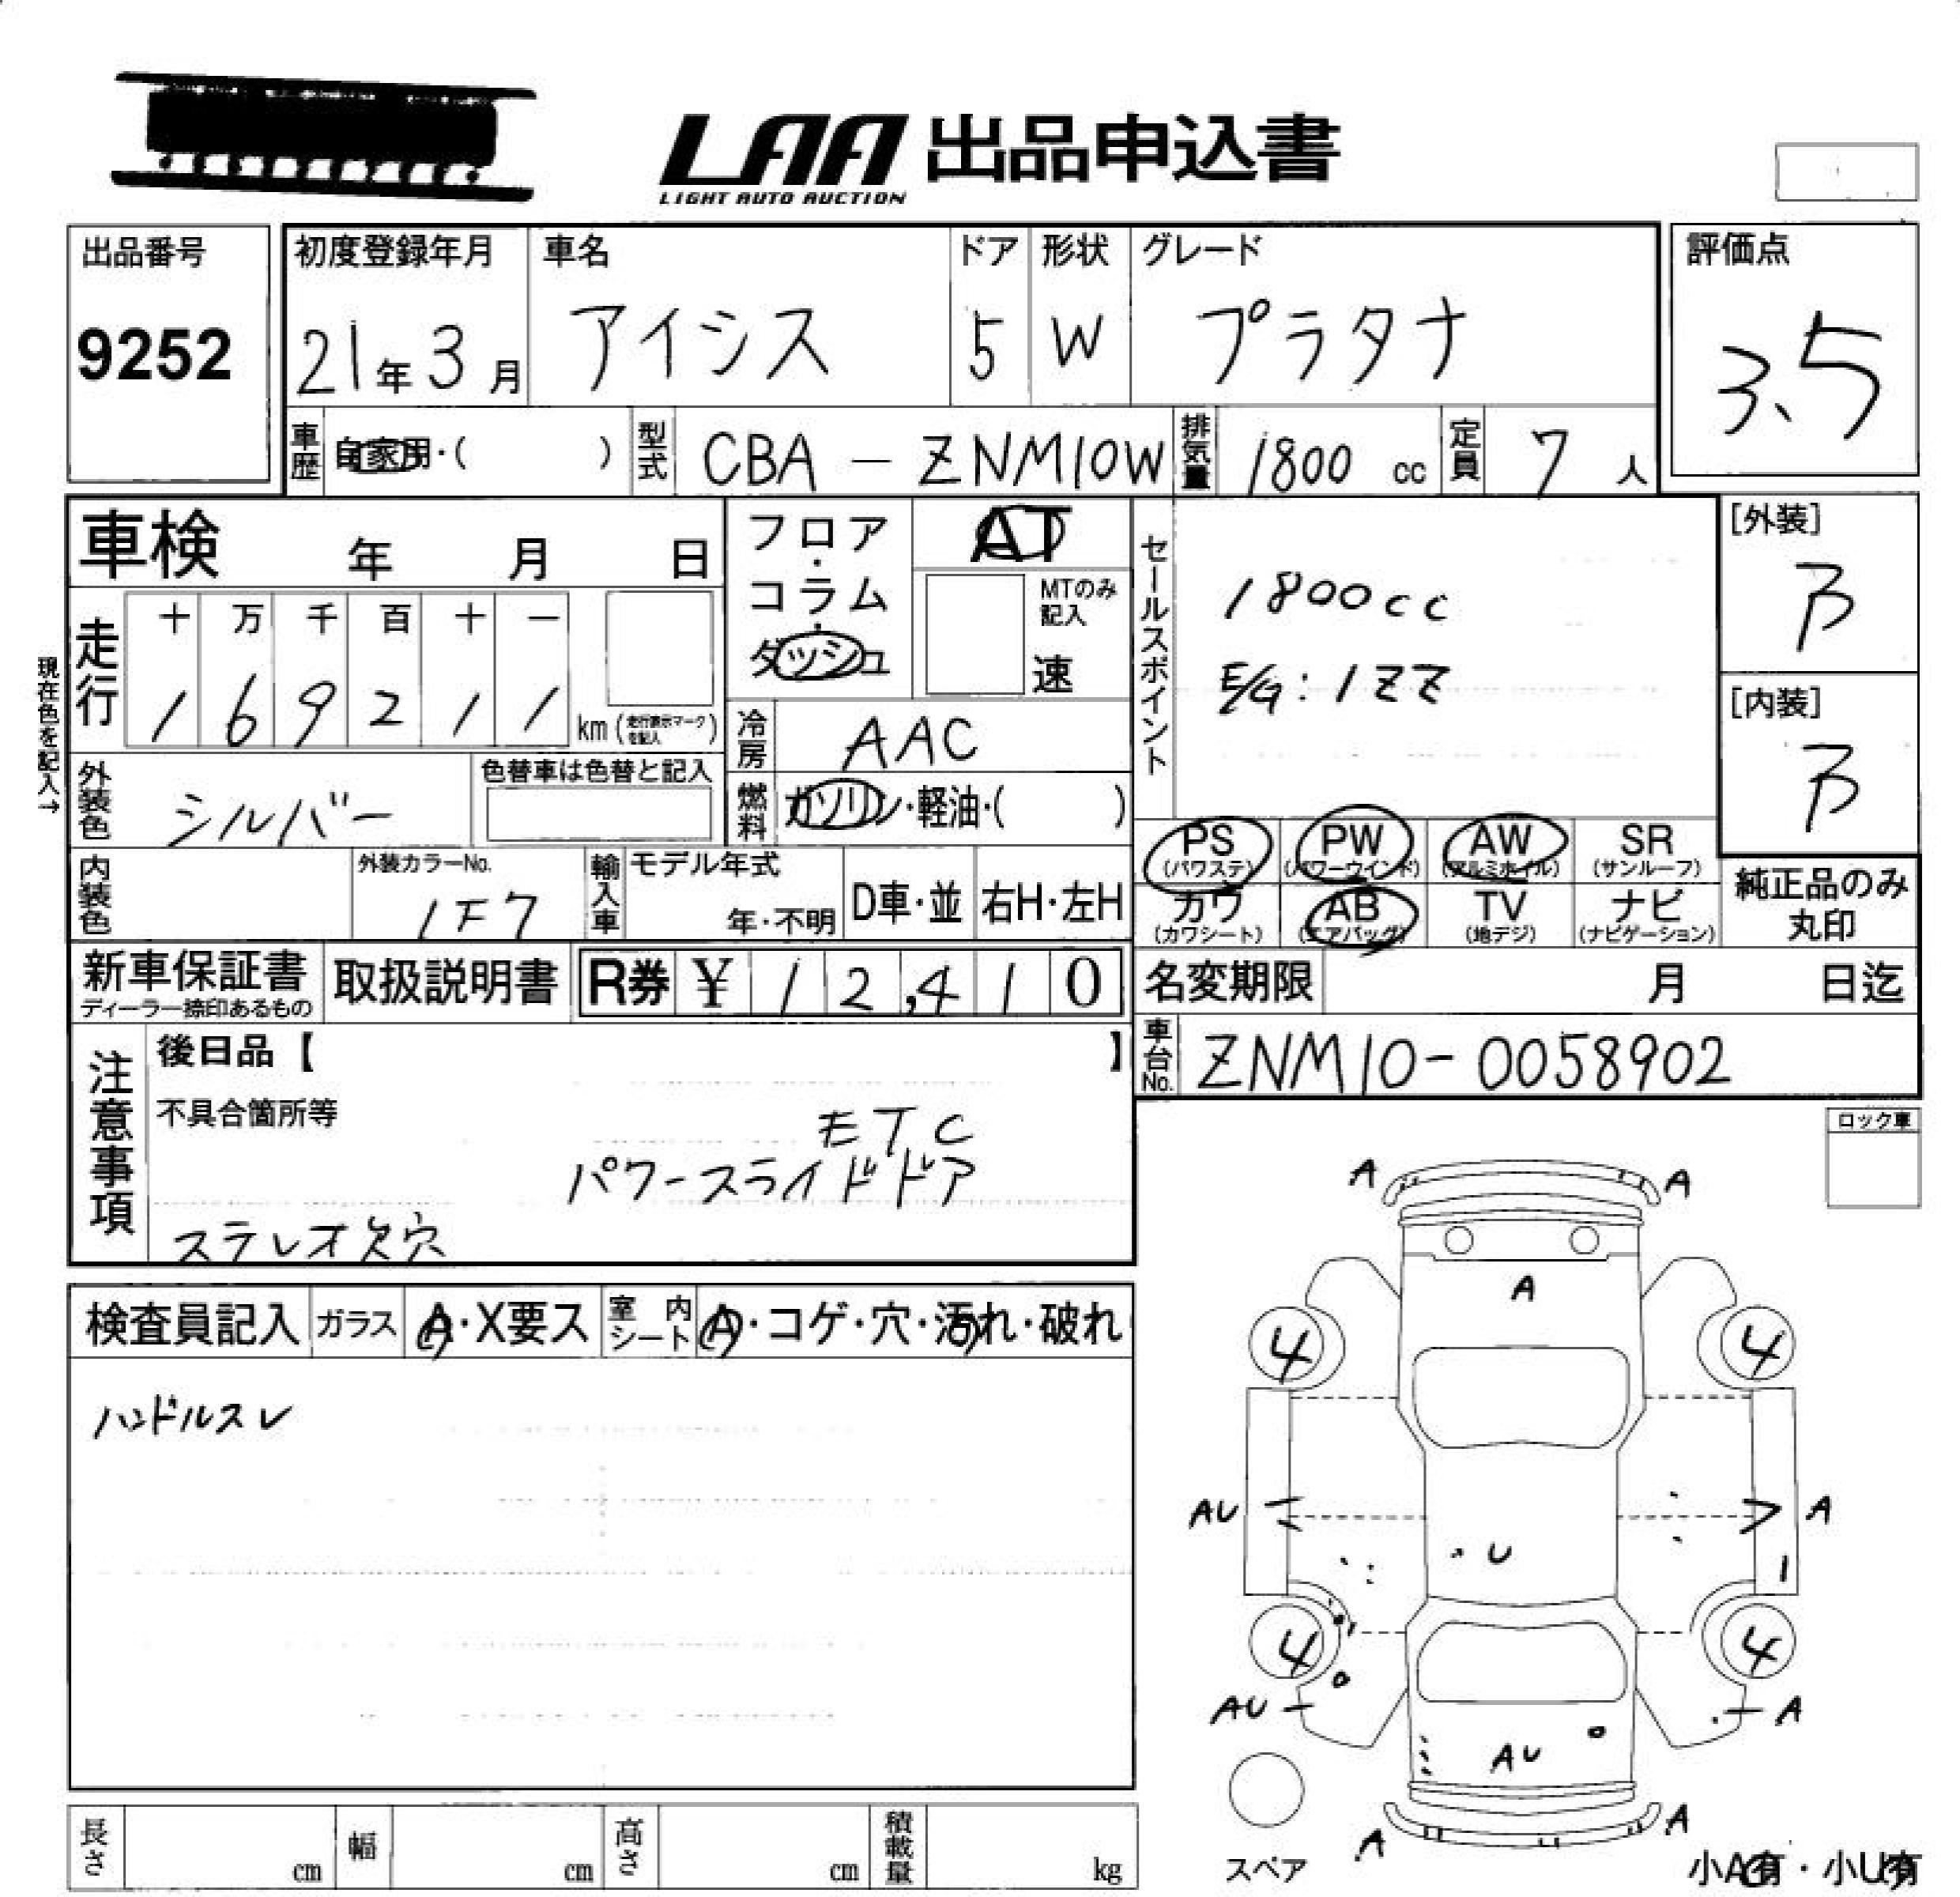 LAA 出品申込書
LIGHT AUTO AUCTION
出品番号 初度登録年月 車名 ドア 形状 グレード 評価点
9252 21年3月 アイシス 5 W プラタナ 3.5
車歴 自家用・( ) 型式 CBA-ZNM10W 排気量 1800 cc 定員 7 人
車検 年 月 日 フロア・コラム・ダッシュ AT
MTのみ記入 速
セールスポイント
1800cc
E/G:1ZZ
[外装]
B
[内装]
B
現在色を記入→
走行 十 万 千 百 十 一
1 6 9 2 1 1 km (走行表示マークを記入)
冷房 AAC
外装色 シルバー 色替車は色替と記入
燃料 ガソリン・軽油・( )
PS (パワステ) PW (パワーウインド) AW (アルミホイル) SR (サンルーフ)
カワ (カワシート) AB (エアバッグ) TV (地デジ) ナビ (ナビゲーション)
純正品のみ丸印
内装色 外装カラーNo. 1F7 輸入車 モデル年式 年・不明 D車・並 右H・左H
新車保証書 ディーラー捺印あるもの 取扱説明書 R券 ¥ 12,410 名変期限 月 日迄
車台No. ZNM10-0058902
注意事項 後日品【 】
不具合箇所等
ETC
パワースライドドア
ステレオ欠穴
ロック車
検査員記入 ガラス A・X要ス 室内シート A・コゲ・穴・汚れ・破れ
ハンドルスレ
A A
A
4 4
AU A
U
1
4 4
AU A
AU
A A
スペア
小A有・小U有
長さ cm 幅 cm 高さ cm 積載量 kg